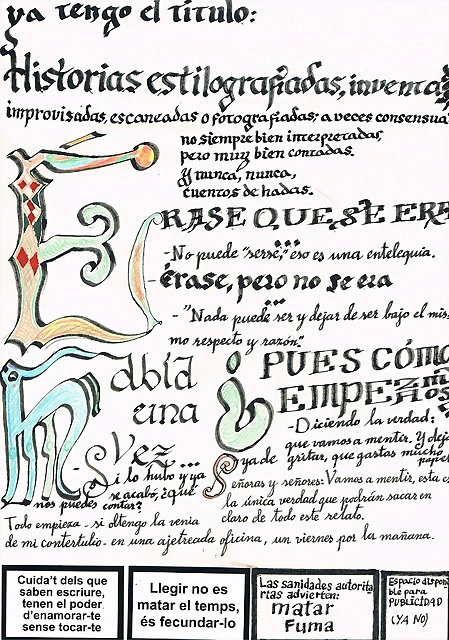 ya tengo el título:
Historias estilografiadas, inventa
improvisadas, escaneadas o fotografiadas; a veces consensua
no siempre bien interpretadas,
pero muy bien contadas.
Y nunca, nunca,
cuentos de hadas.
ÉRASE QUE SE ERA
- No puede "serse," eso es una entelequia.
Érase, pero no se era
- "Nada puede ser y dejar de ser bajo el mis-
mo respecto y razón."
Había
una
Vez...
- Si lo hubo y ya
se acabó, ¿qué
nos puedes contar?
¿PUES CÓMO
EMPEZAMOS
- Diciendo la verdad:
que vamos a mentir. Y deja
ya de gritar, que gastas mucho
papel
Señoras y señores: Vamos a mentir, esta es
la única verdad que podrán sacar en
claro de todo este relato.
Todo empieza - si obtengo la venia
de mi contertulio - en una ajetreada oficina, un viernes por la mañana.
Cuida't dels que
saben escriure,
tenen el poder
d'enamorar-te
sense tocar-te
Llegir no es
matar el temps,
és fecundar-lo
Las sanidades autorita
rias advierten:
matar
Fuma
Espacio disponi
ble para
PUBLICIDAD
(YA NO)